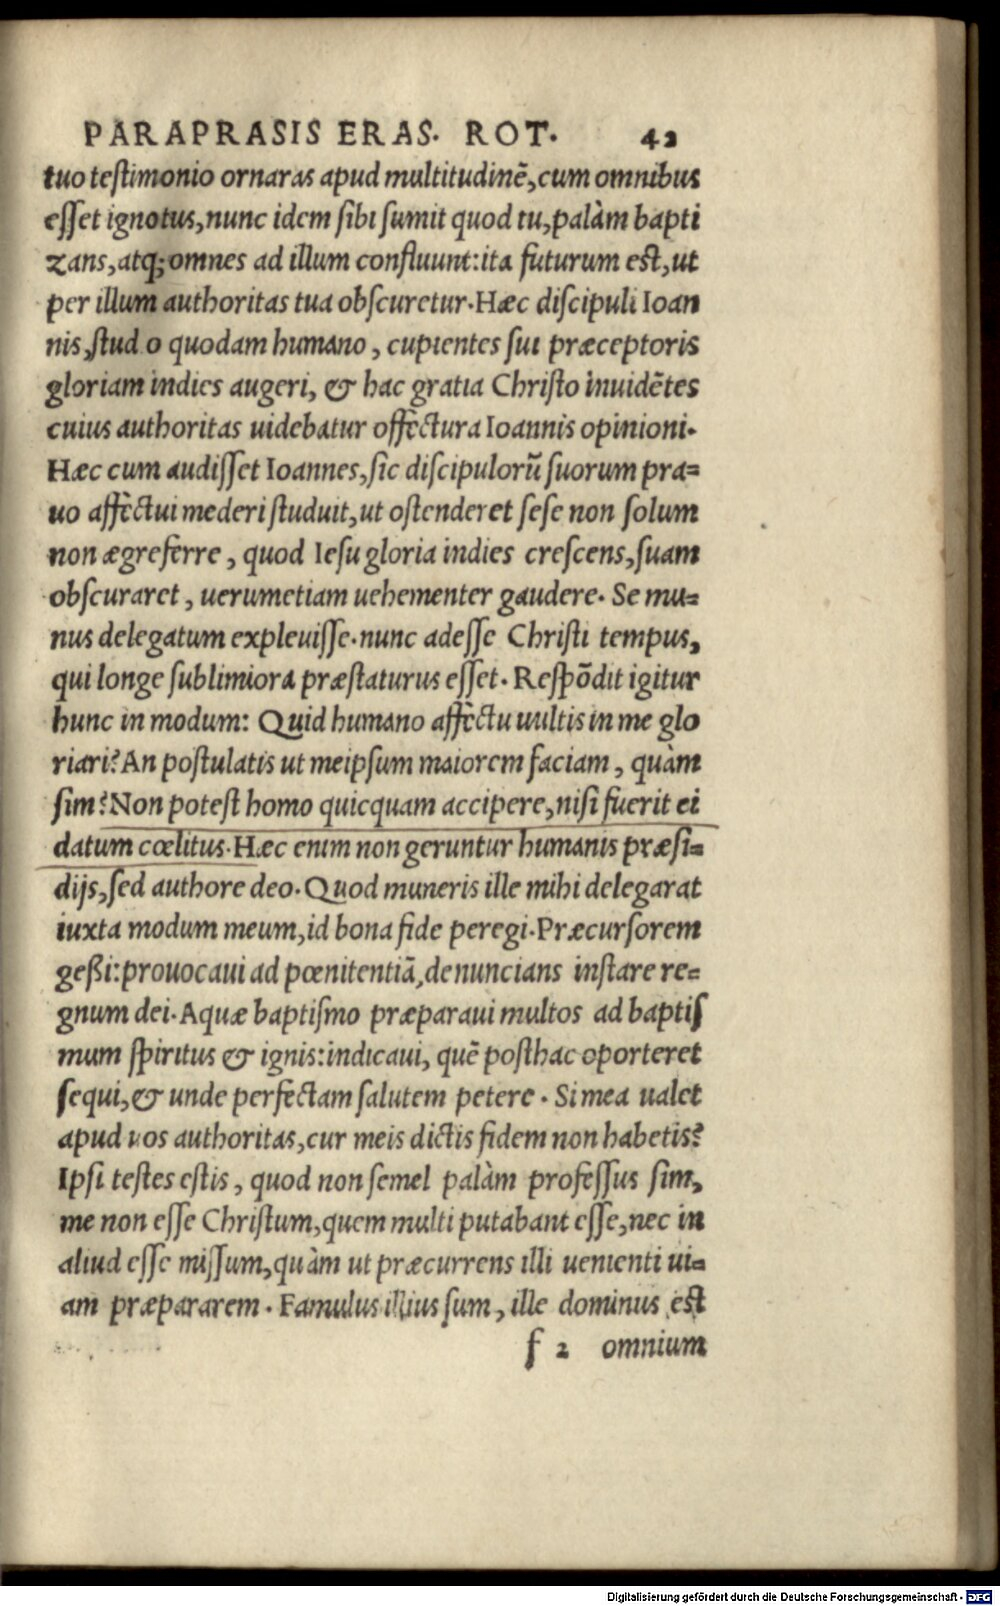 PARAPRASIS ERAS. ROT. 42
tuo testimonio ornaras apud multitudinē, cum omnibus
esset ignotus, nunc idem sibi sumit quod tu, palàm bapti
zans, atq; omnes ad illum confluunt: ita futurum est, ut
per illum authoritas tua obscuretur. Hæc discipuli Ioan
nis, stud o quodam humano, cupientes sui præceptoris
gloriam indies augeri, & hac gratia Christo inuidētes
cuius authoritas uidebatur offectura Ioannis opinioni.
Hæc cum audisset Ioannes, sic discipulorū suorum pra=
uo affectui mederi studuit, ut ostenderet sese non solum
non ægreferre, quod Iesu gloria indies crescens, suam
obscuraret, uerumetiam uehementer gaudere. Se mu=
nus delegatum expleuisse. nunc adesse Christi tempus,
qui longe sublimiora præstaturus esset. Respōdit igitur
hunc in modum: Quid humano affectu uultis in me glo
riari? An postulatis ut meipsum maiorem faciam, quàm
sim? Non potest homo quicquam accipere, nisi fuerit ei
datum cœlitus. Hæc enim non geruntur humanis præsi=
dijs, sed authore deo. Quod muneris ille mihi delegarat
iuxta modum meum, id bona fide peregi. Præcursorem
geßi: prouocaui ad pœnitentiā, denuncians instare re=
gnum dei. Aquæ baptismo præparaui multos ad baptis
mum spiritus & ignis: indicaui, quē posthac oporteret
sequi, & unde perfectam salutem petere. Si mea ualet
apud uos authoritas, cur meis dictis fidem non habetis?
Ipsi testes estis, quod non semel palàm professus sim,
me non esse Christum, quem multi putabant esse, nec in
aliud esse missum, quàm ut præcurrens illi uenienti ui=
am præpararem. Famulus illius sum, ille dominus est
f 2 omnium
Digitalisierung gefördert durch die Deutsche Forschungsgemeinschaft - DFG